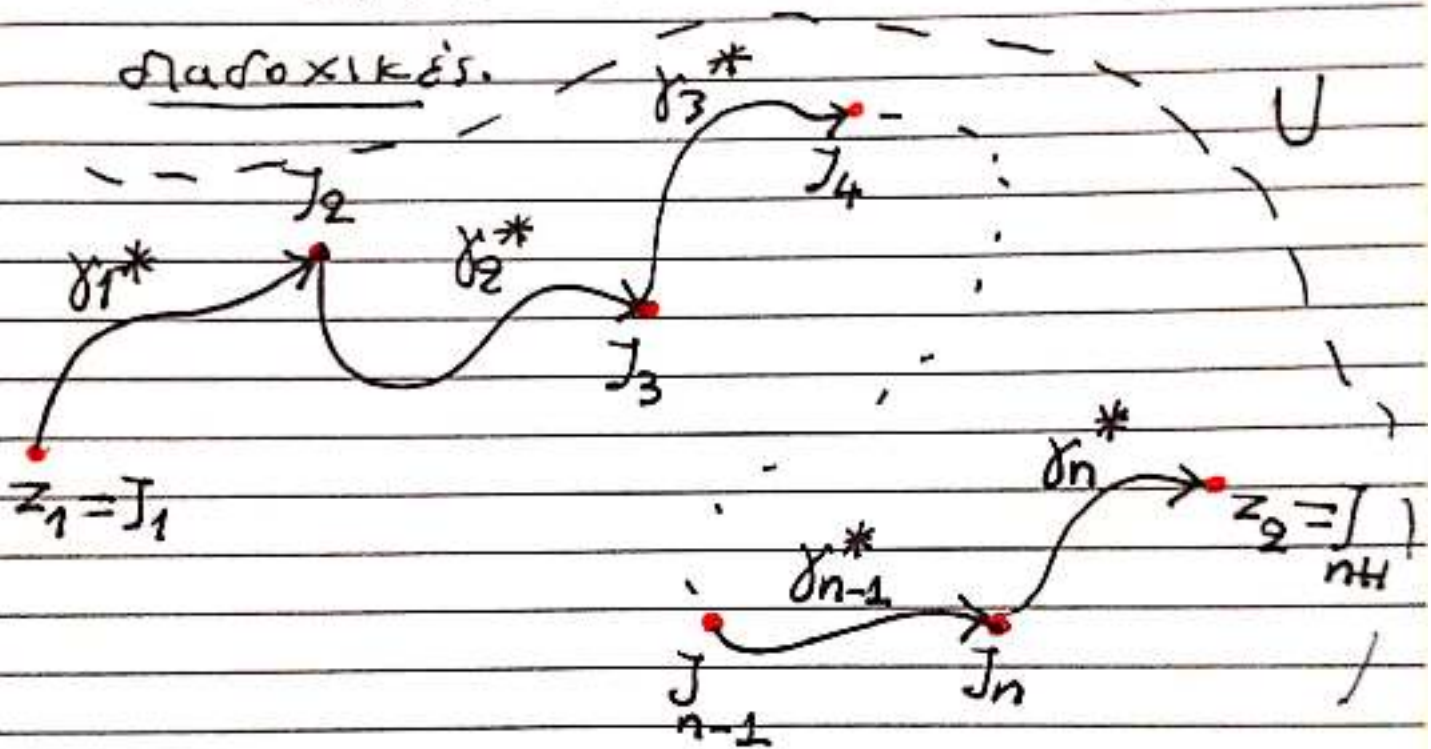 διαδοχικές.
γ3*
U
J4
J2
γ1*
γ2*
J3
γn*
z1 = J1
z2 = J n+1
γ*n-1
J n-1
Jn